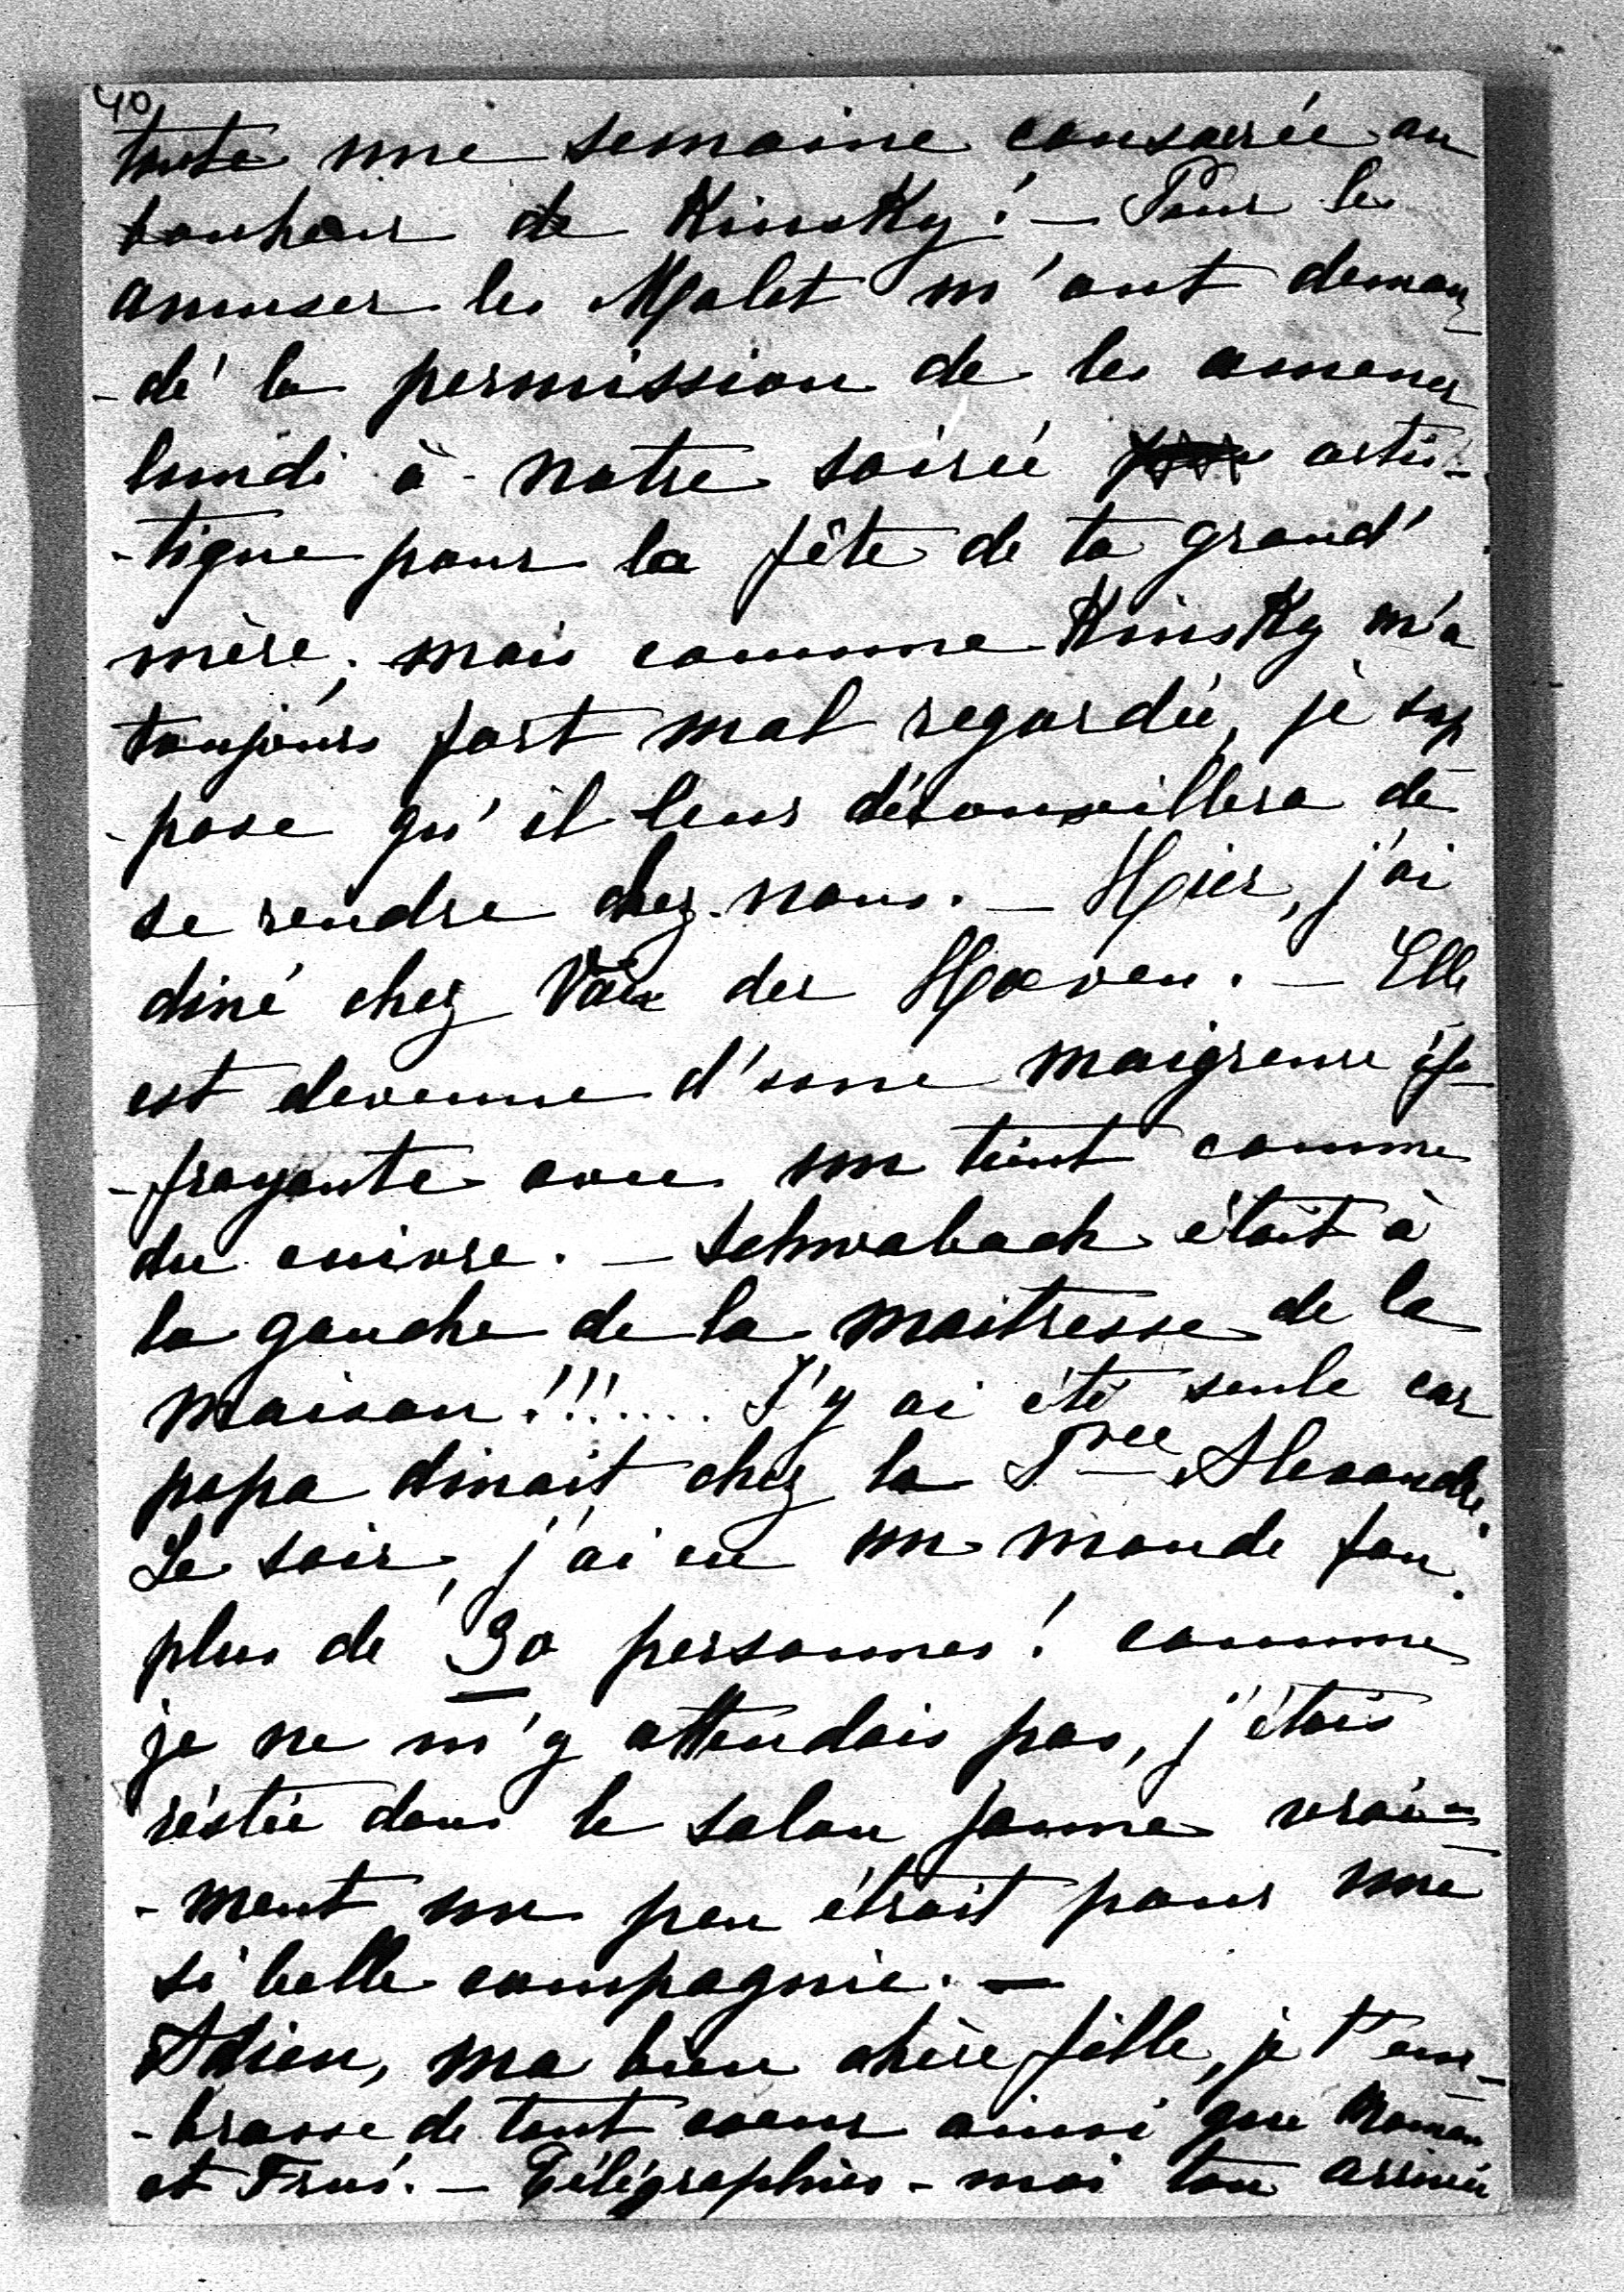 40
toute une semaine consacrée au
bonheur de Kinsky! — Pour les
amuser les Malet m'ont deman-
-dé la permission de les amener
lundi à notre soirée artis-
-tique pour la fête de ta grand'
mère; mais comme Kinsky m'a
toujours fort mal regardée, je sup
-pose qu'il leur déconseillera de
se rendre chez nous. — Hier, j'ai
diné chez Van der Hoeven. — Elle
est devenue d'une maigreure ef-
-frayante avec un teint comme
du cuivre. — Schwabach était à
la gauche de la maitresse de la
maison!!!...... J'y ai été seule car
papa dinait chez la Pcee Alexandre.
Le soir, j'ai eu un monde fou.
plus de 30 personnes! comme
je ne m'y attendais pas, j'étais
réstée dans le salon jaune vrai-
-ment un peu étroit pour une
si belle compagnie. —
Adieu, ma bien chère fille, je t'em-
-brasse de tout coeur ainsi que Maman
et . — Télégraphies-moi ton arrivée